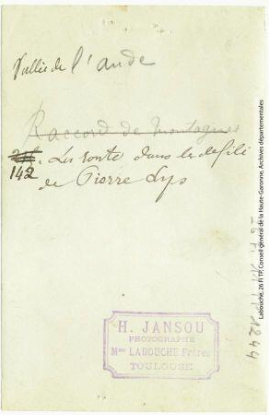 Vallée de l'aude
Raccord de montagnes
142. La route dans le défilé
de Pierre Lys
H. JANSOU
PHOTOGRAPHE
Mon LABOUCHE Frères
TOULOUSE
Labouche, 26 FI TP, Conseil général de la Haute-Garonne, Archives départementales
1244